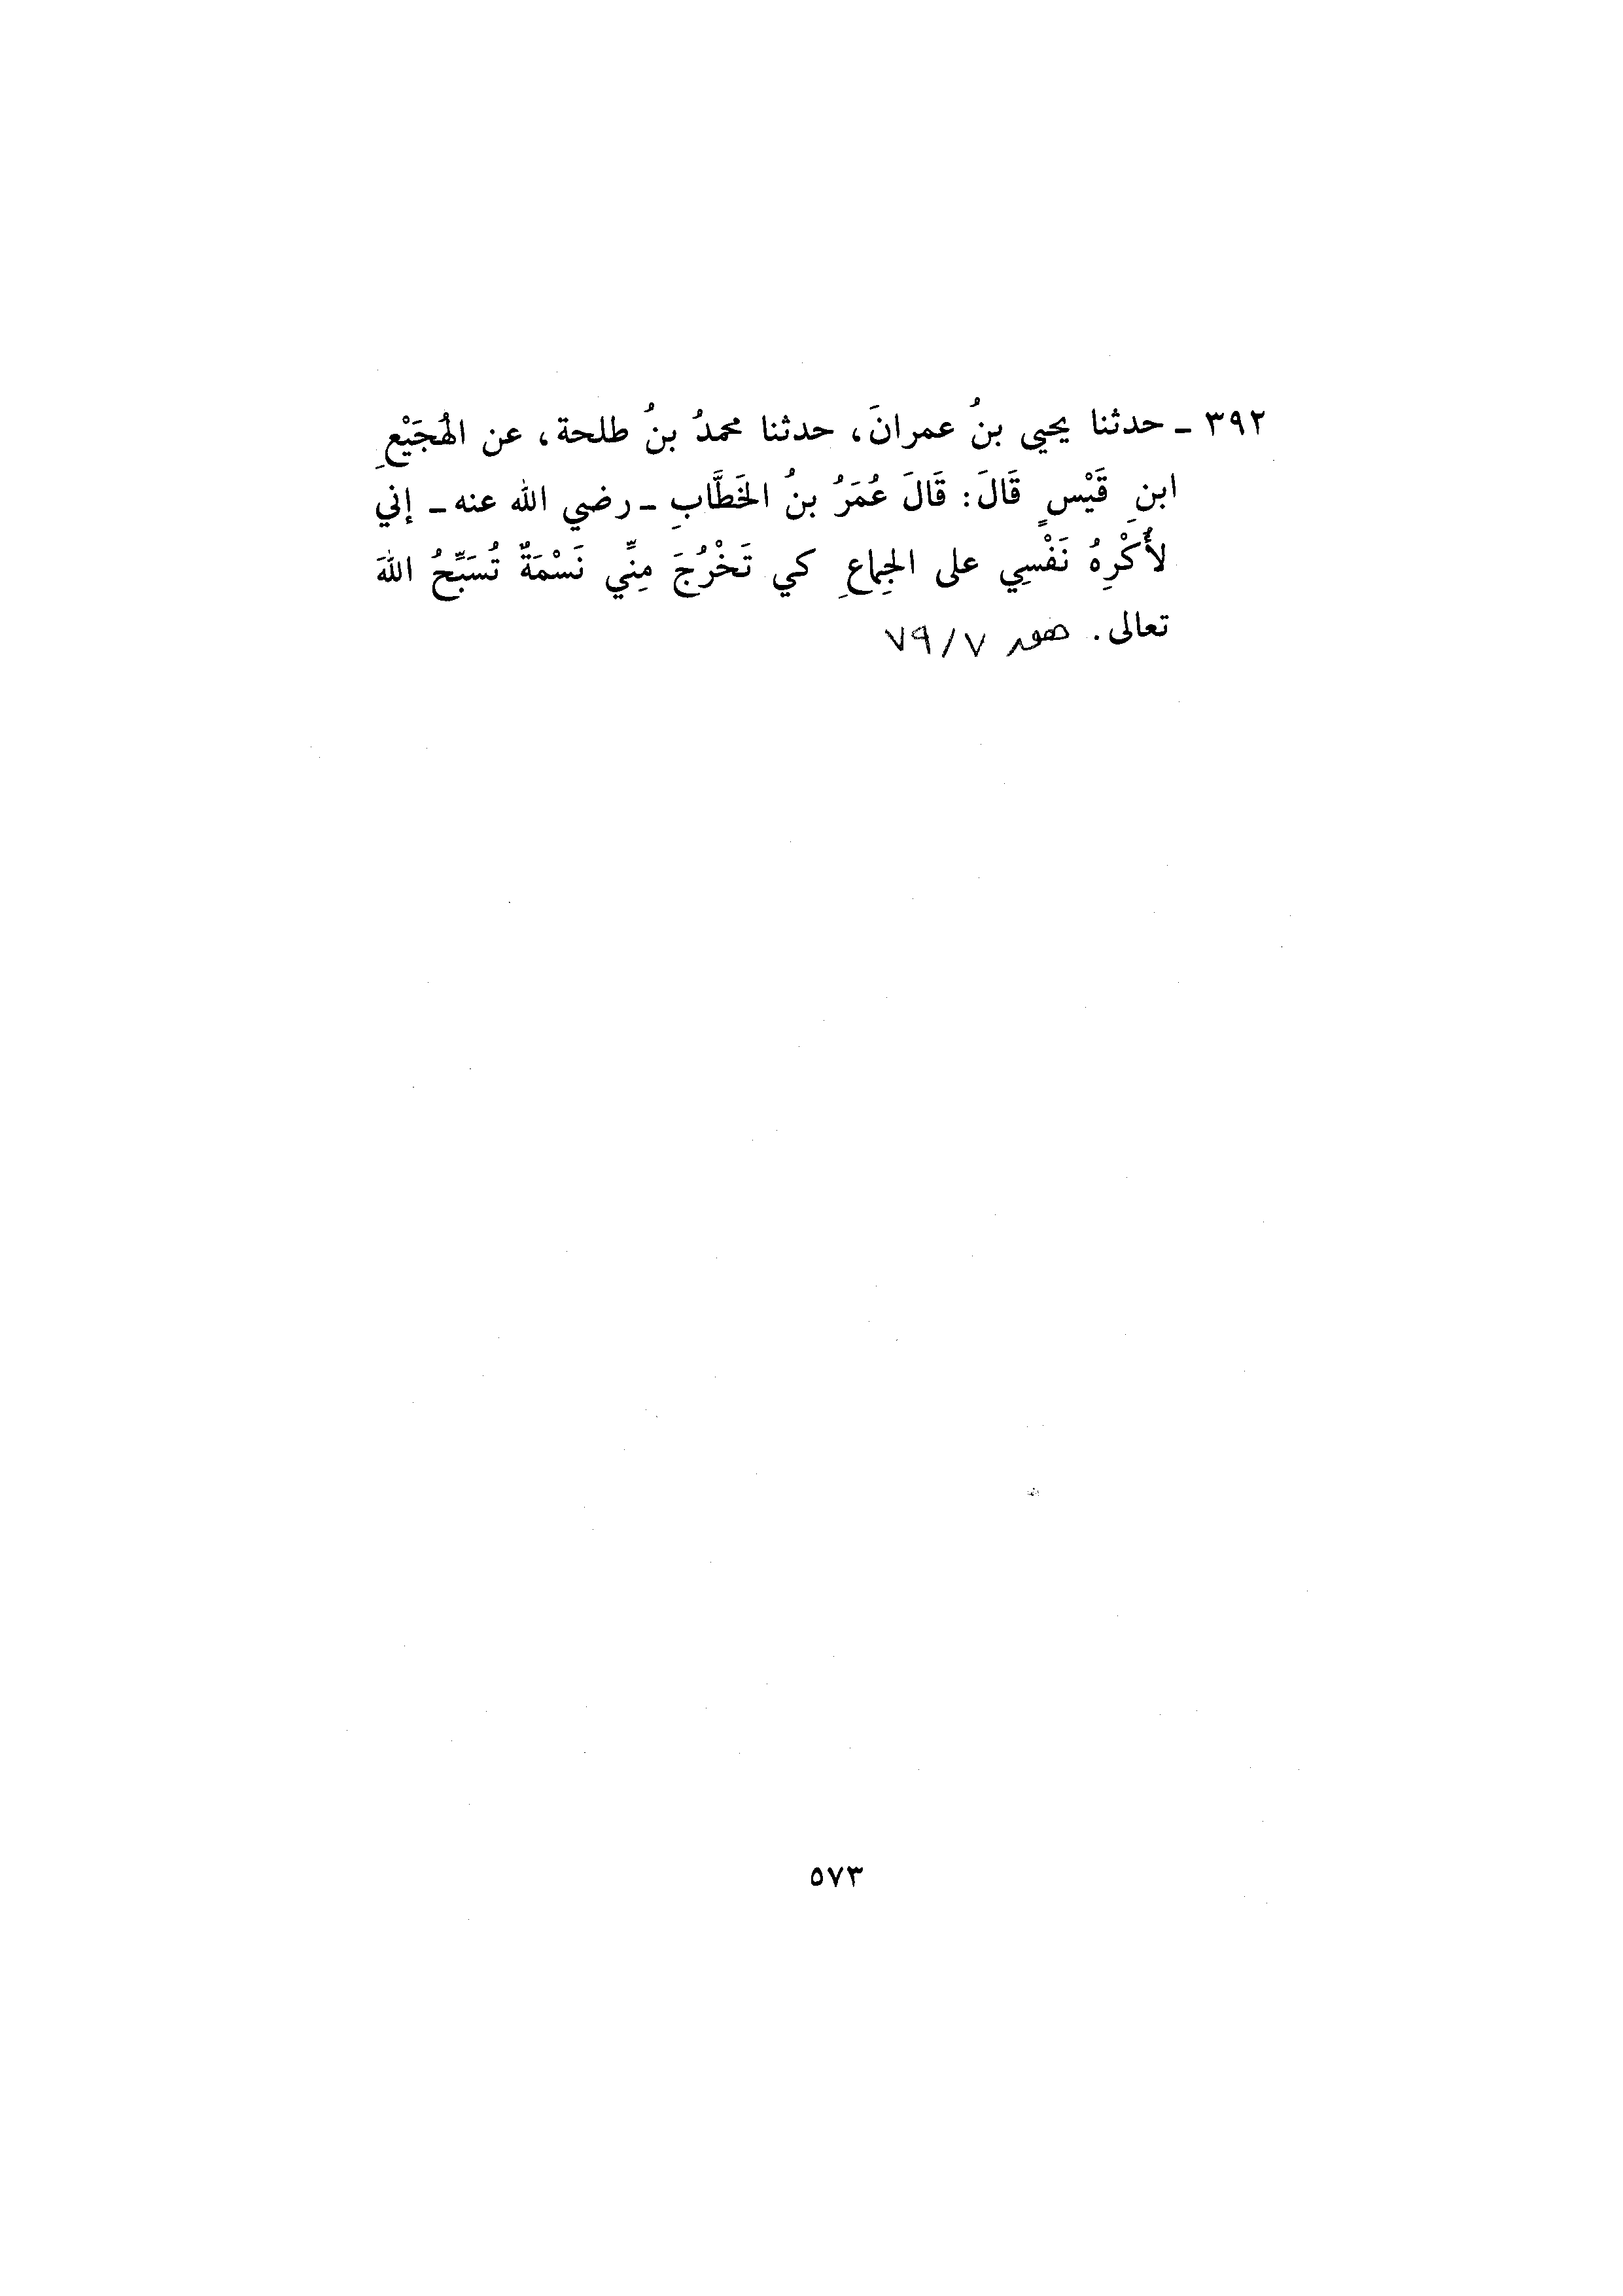 ٣٩٢ ـ حدثنا يحيى بنُ عمرانَ، حدثنا محمدُ بنُ طلحة، عن الهُجَيْعِ
ابنِ قَيْسٍ قَالَ: قَالَ عُمَرُ بنُ الخَطَّابِ ـ رضي الله عنه ـ إني
لأُكْرِهُ نَفْسِي على الجِماعِ كي تَخْرُجَ مِنِّي نَسْمَةٌ تُسَبِّحُ اللهَ
تعالى. ٧٩/٧
٥٧٣